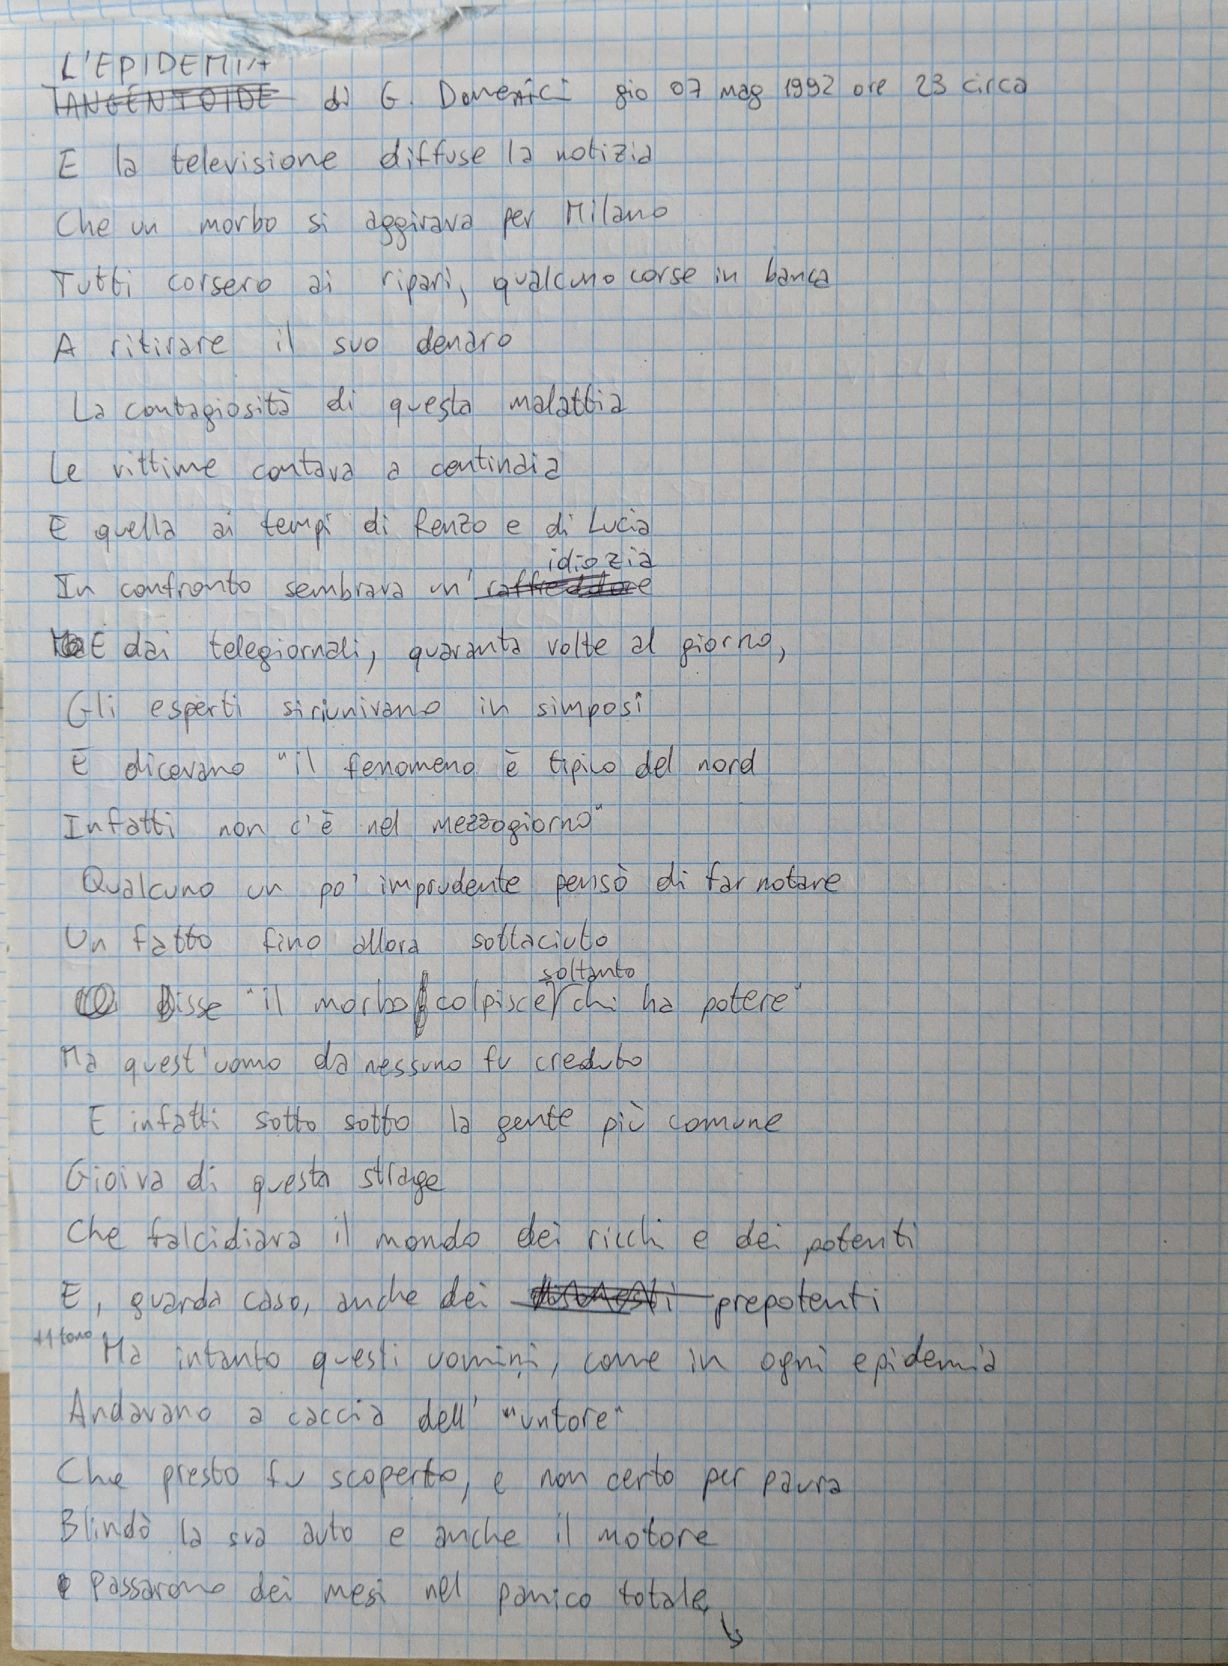 L'EPIDEMIA
TANGENTOIDE di G. Domenici gio 07 mag 1992 ore 23 circa
E la televisione diffuse la notizia
Che un morbo si aggirava per Milano
Tutti corsero ai ripari, qualcuno corse in banca
A ritirare il suo denaro
La contagiosità di questa malattia
Le vittime contava a centinaia
E quella ai tempi di Renzo e di Lucia
idiozia
In confronto sembrava un' raffreddore
E dai telegiornali, quaranta volte al giorno,
Gli esperti si riunivano in simposi
E dicevano "il fenomeno è tipico del nord
Infatti non c'è nel mezzogiorno"
Qualcuno un po' imprudente pensò di far notare
Un fatto fino allora sottaciuto
soltanto
Disse "il morbo colpisce chi ha potere"
Ma quest'uomo da nessuno fu creduto
E infatti sotto sotto la gente più comune
Gioiva di questa strage
Che falcidiava il mondo dei ricchi e dei potenti
E, guarda caso, anche dei disonesti prepotenti
++ tono Ma intanto questi uomini, come in ogni epidemia
Andavano a caccia dell' "untore"
Che presto fu scoperto, e non certo per paura
Blindò la sua auto e anche il motore
Passarono dei mesi nel panico totale